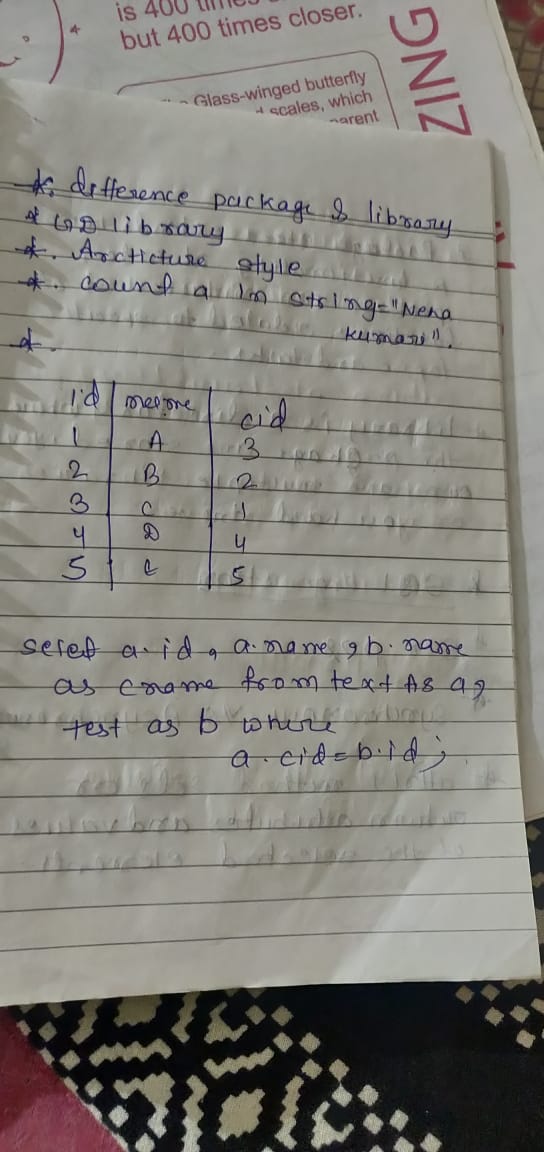 is 400 times
but 400 times closer.
ZING
Glass-winged butterfly
scales, which
*. difference package & library
* library
*. Arcticture style
*. count a in string="Neha
kumari".
*.
id | name | cid
1 | A | 3
2 | B | 2
3 | C | 1
4 | D | 4
5 | C | 5
select a.id, a.name, b.name
as cname from text AS a,
test as b where
a.cid=b.id;